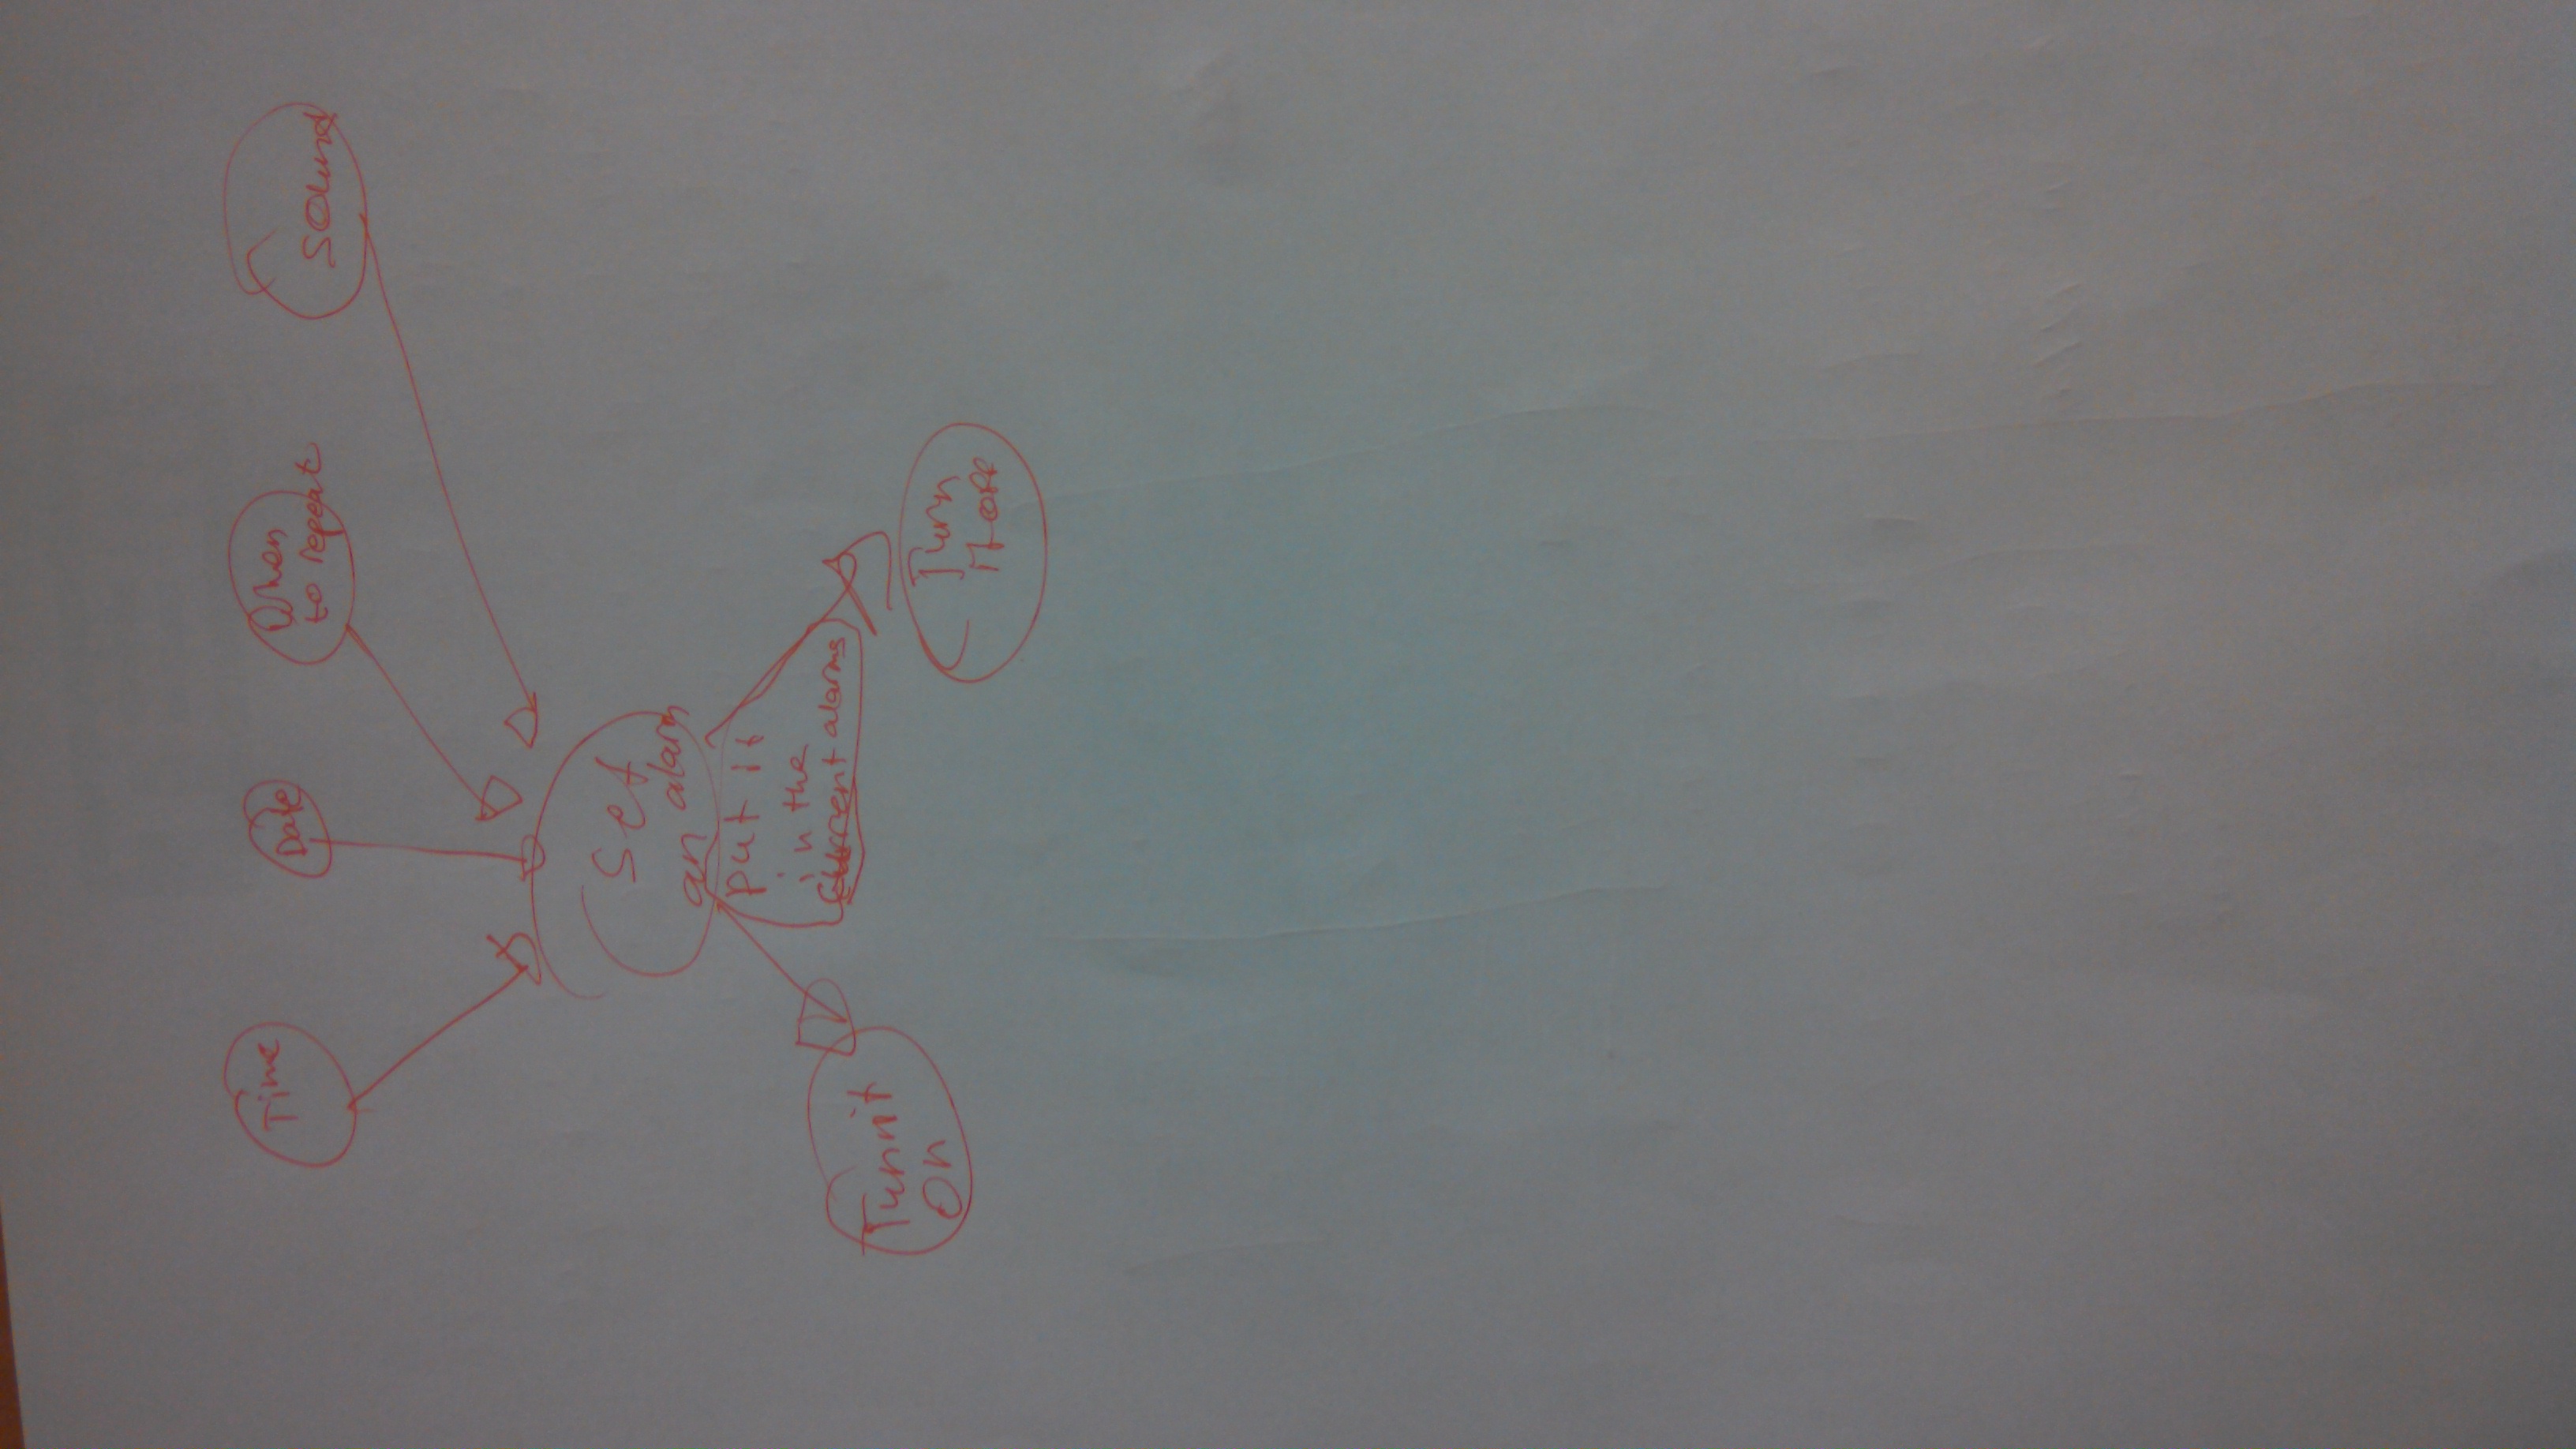 Time
Date
When
to repeat
Sound
Set
an alarm
put it
in the
current alarms
Turn it
On
Turn
it off